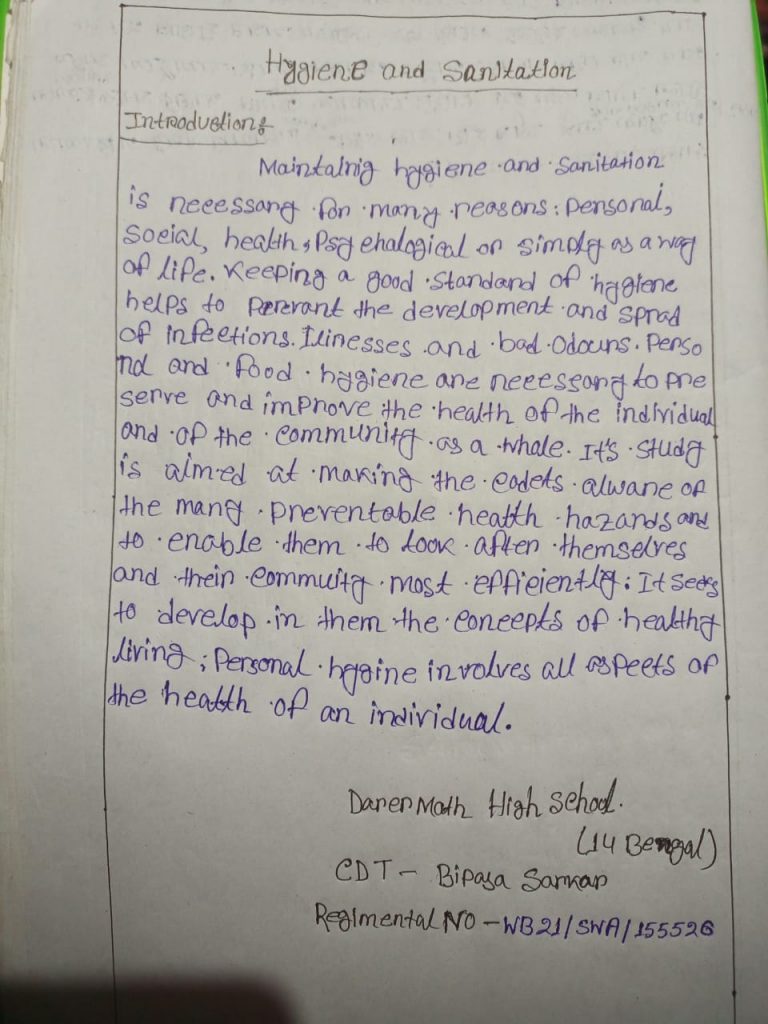 Hygiene and Sanitation
Introduction:
Maintainig hygiene and Sanitation
is necessary for many reasons: Personal,
Social, health, Psy chalogical or simply as a way
of life. Keeping a good standard of hygiene
helps to Perevant the development and sprad
of infections. Illnesses and bad odours. Perso
nal and food hygiene are necessary to pre
serve and improve the health of the individual
and of the community as a whole. It's study
is aimed at making the cadets alware of
the many preventable health hazards and
to enable them to look after themselves
and their commuity most efficiently: It seeks
to develop in them the concepts of healthy
living; Personal hygine involves all aspects of
the health of an individual.
High School.
(14 Bengal)
CDT - Bipasa Sarkar
Regimental NO - WB21/SWA/155526